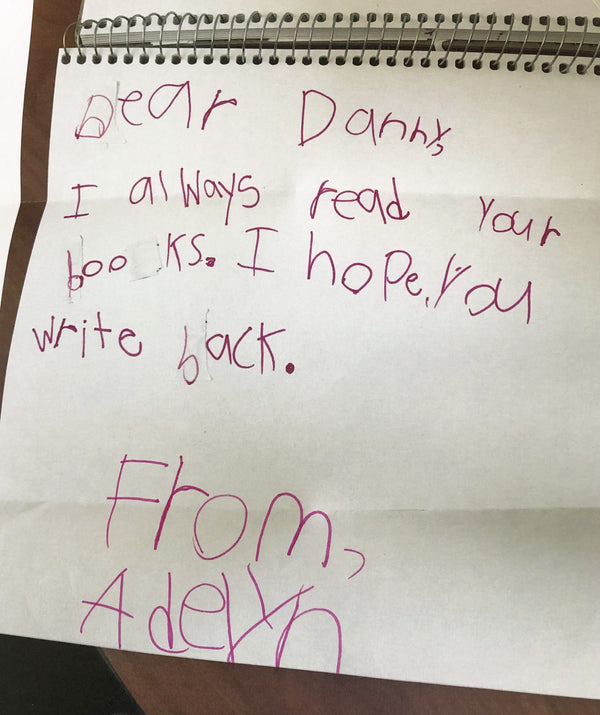 Dear Danny,
I always read your
books. I hope. You
write back.
From,
Adelyn